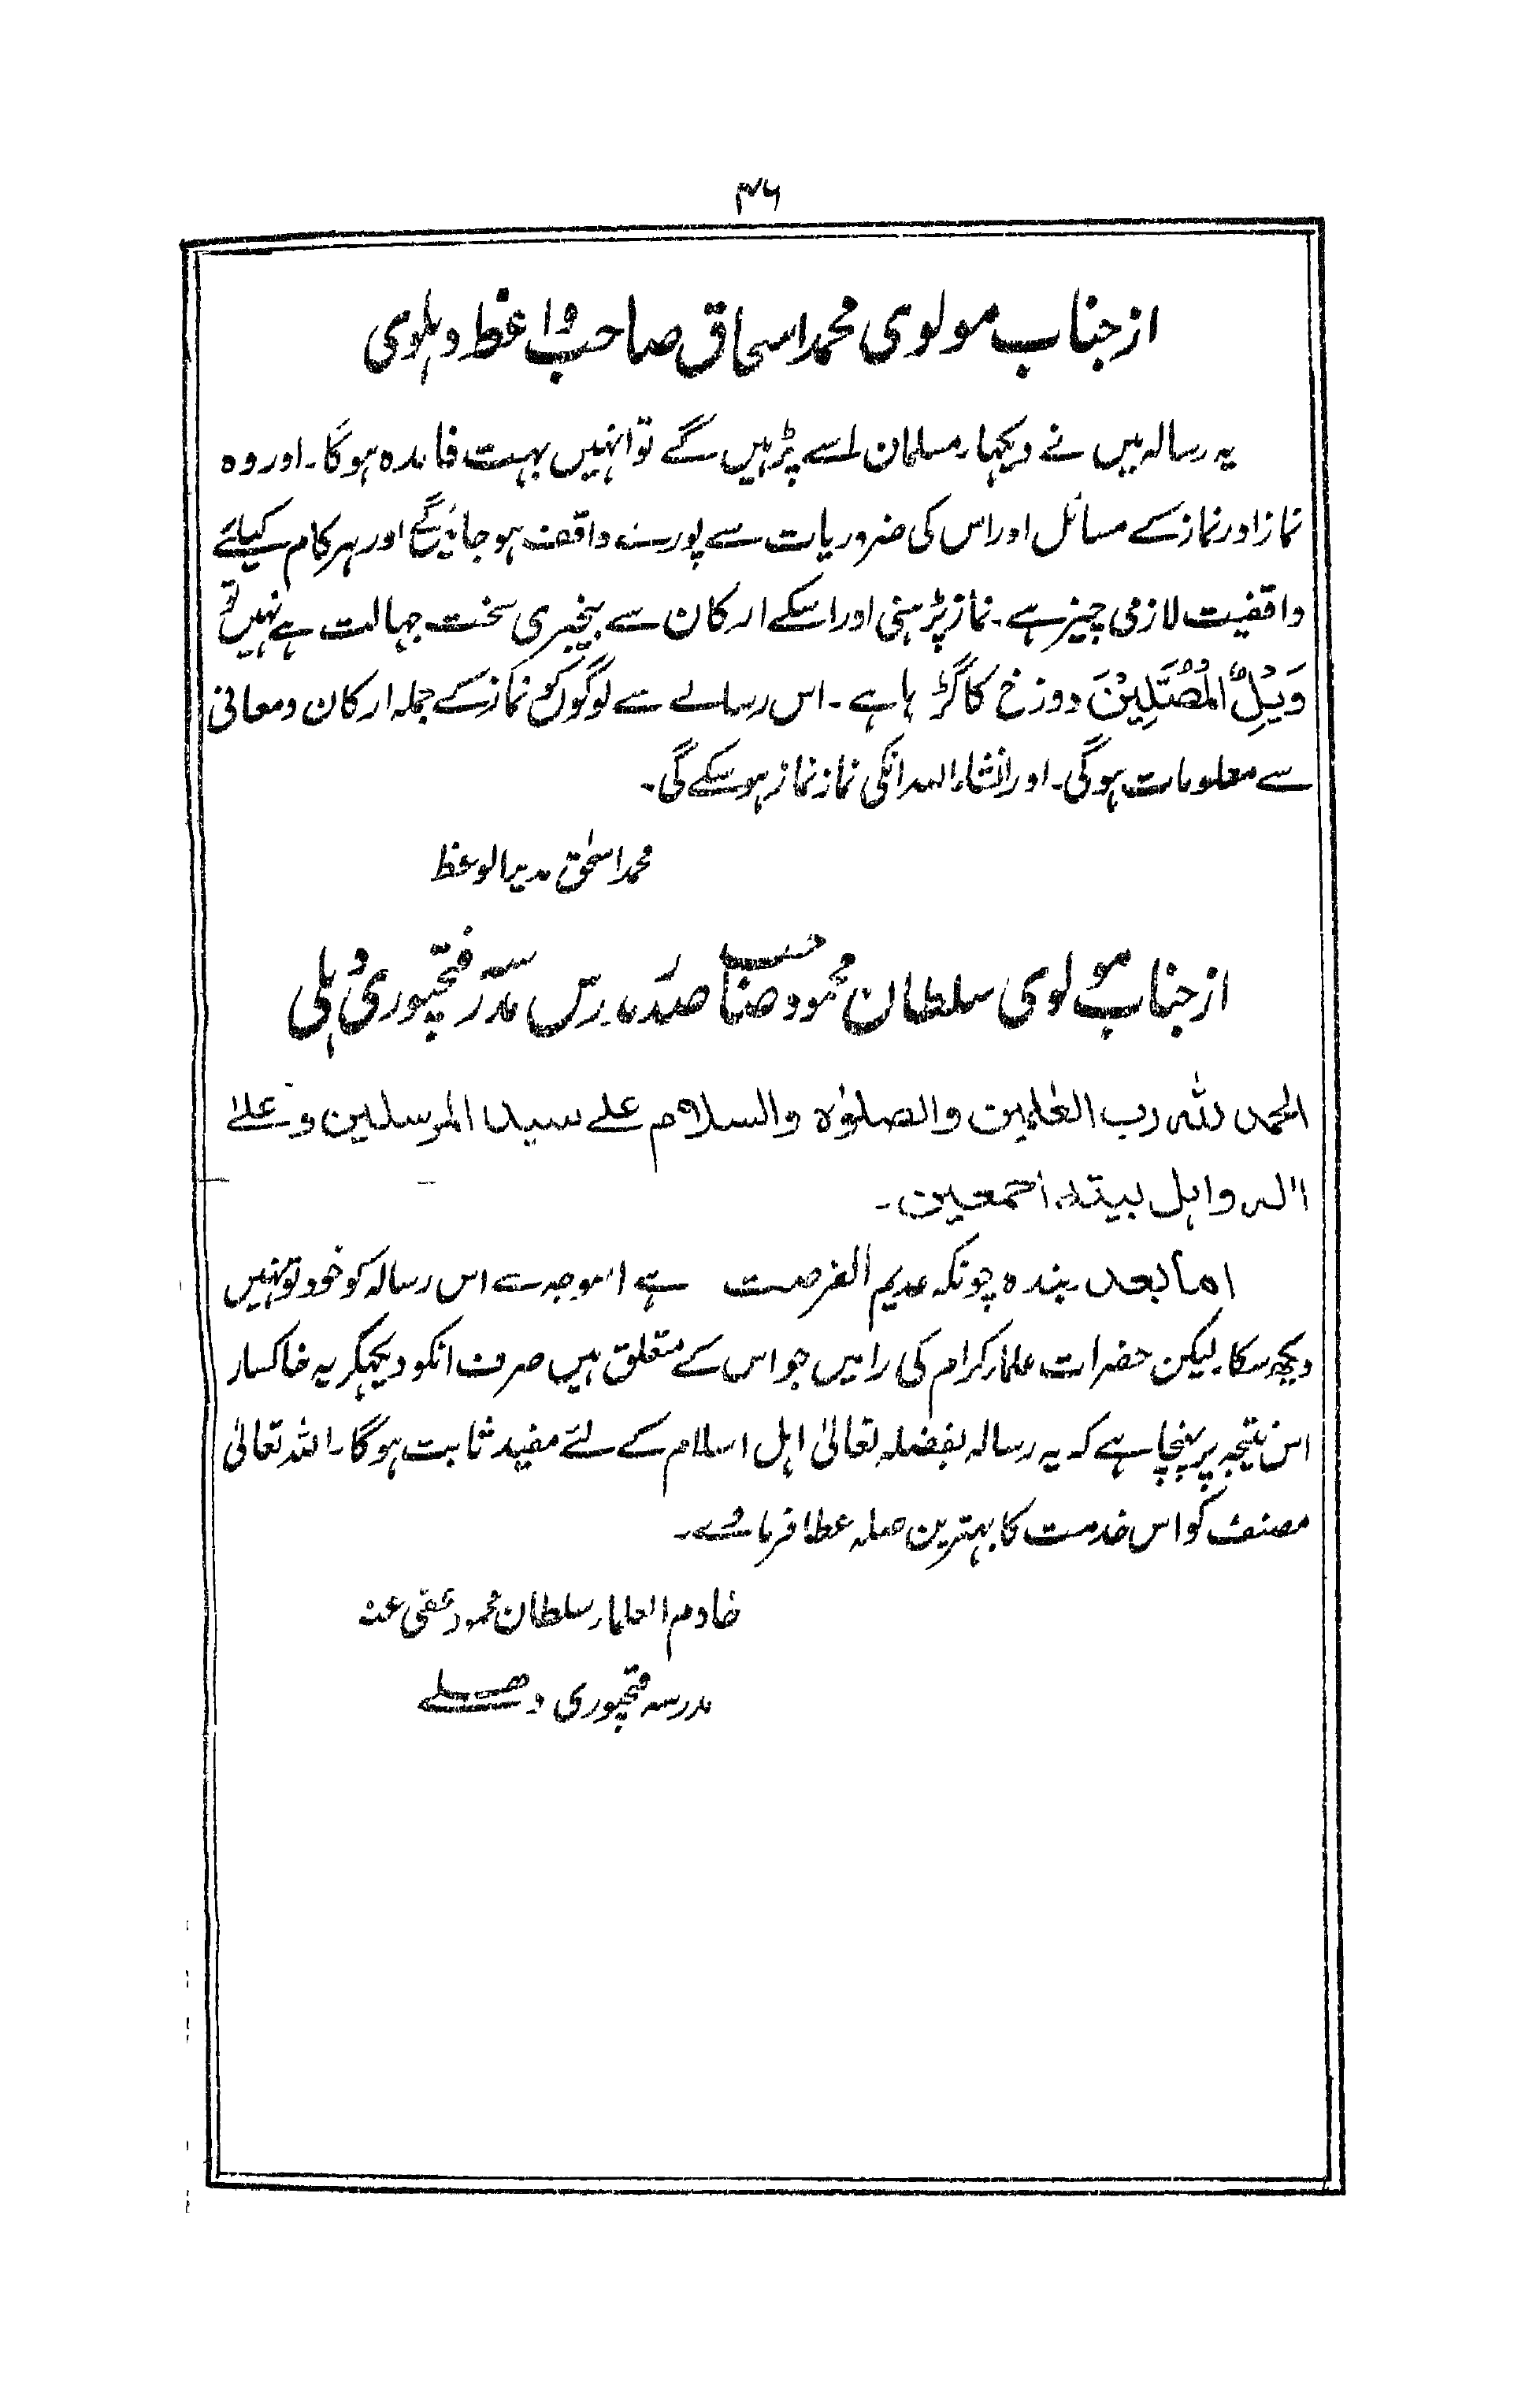 ۳۶
از جناب مولوی محمد اسحاق صاحب واعظ دہلوی
یہ رسالہ میں نے دیکہا۔ مسلمان اسے پڑہیں گے تو انہیں بہت فائدہ ہوگا۔ اور وہ
نماز اور نماز کے مسائل اور اس کی ضروریات سے پورے واقف ہو جائینگے اور ہر کام کیلئے
واقفیت لازمی چیز ہے۔ نماز پڑہنی اور اسکے ارکان سے بیخبری سخت جہالت ہے نہیں تو
وَیْلٌ الْمُصَلِّیْنَ دوزخ کا گڑہا ہے۔ اس رسالے سے لوگوں کو نماز کے جملہ ارکان و معانی
سے معلومات ہوگی۔ اور انشاء اللہ انکی نماز نماز ہو سکے گی۔
محمد اسحٰق مدیر الوعظ
از جناب مولوی سلطان محمود صاحب صدر مدرس مدرسہ فتحپوری دہلی
الحمد للہ رب العٰلمین والصلوٰۃ والسلام علے سید المرسلین و علےٰ
اٰلہ واہل بیتہ اجمعین۔
اما بعد بندہ چونکہ عدیم الفرصت ہے اسوجہ سے اس رسالہ کو خود تو نہیں
دیکھ سکا۔ لیکن حضرات علماء کرام کی رائیں جو اس کے متعلق ہیں صرف انکو دیکہکر یہ خاکسار
اس نتیجہ پر پہنچا ہے کہ یہ رسالہ بفضلہ تعالیٰ اہل اسلام کے لئے مفید ثابت ہوگا۔ اللہ تعالیٰ
مصنف کو اس خدمت کا بہترین صلہ عطا فرماوے۔
خادم العلماء سلطان محمود عفی عنہ
مدرسہ فتحپوری دہلے